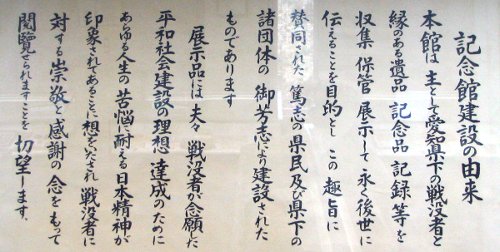 記念館建設の由来
本館は 主として愛知県下の戦没者と
縁のある遺品 記念品 記録等を
収集 保管 展示して 永く後世に
伝えることを目的とし この 趣旨に
賛同された 篤志の県民及び県下の
諸団体の 御芳志により 建設された
ものであります
展示品には 夫々 戦没者が念願した
平和社会建設の理想 達成のために
あらゆる人生の 苦悩に耐える 日本精神が
印象されてあることに 想をいたされ 戦没者に
対する 崇敬と感謝の 念を もって
閲覧せられますことを 切望します.